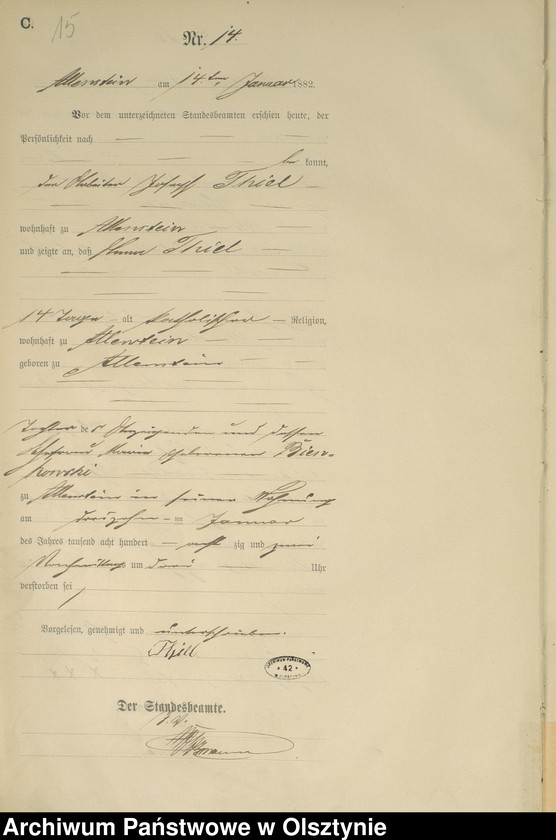 C. 15
Nr. 14.
Allenstein am 14ten Januar 1882.
Vor dem unterzeichneten Standesbeamten erschien heute, der
Persönlichkeit nach
be kannt,
der Arbeiter Joseph Thiel
wohnhaft zu Allenstein
und zeigte an, daß Anna Thiel
14 Tage alt katholischer Religion,
wohnhaft zu Allenstein
geboren zu Allenstein
Tochter des Anzeigenden und dessen
Ehefrau Maria geborenen Bien-
kowski
zu Allenstein in seiner Wohnung
am dreizehn ten Januar
des Jahres tausend acht hundert acht zig und zwei
Vormittags um drei Uhr
verstorben sei
Vorgelesen, genehmigt und unterschrieben.
Thiel
ARCHIWUM PAŃSTWOWE
42
W OLSZTYNIE
Der Standesbeamte.
J. V.
Archiwum Państwowe w Olsztynie